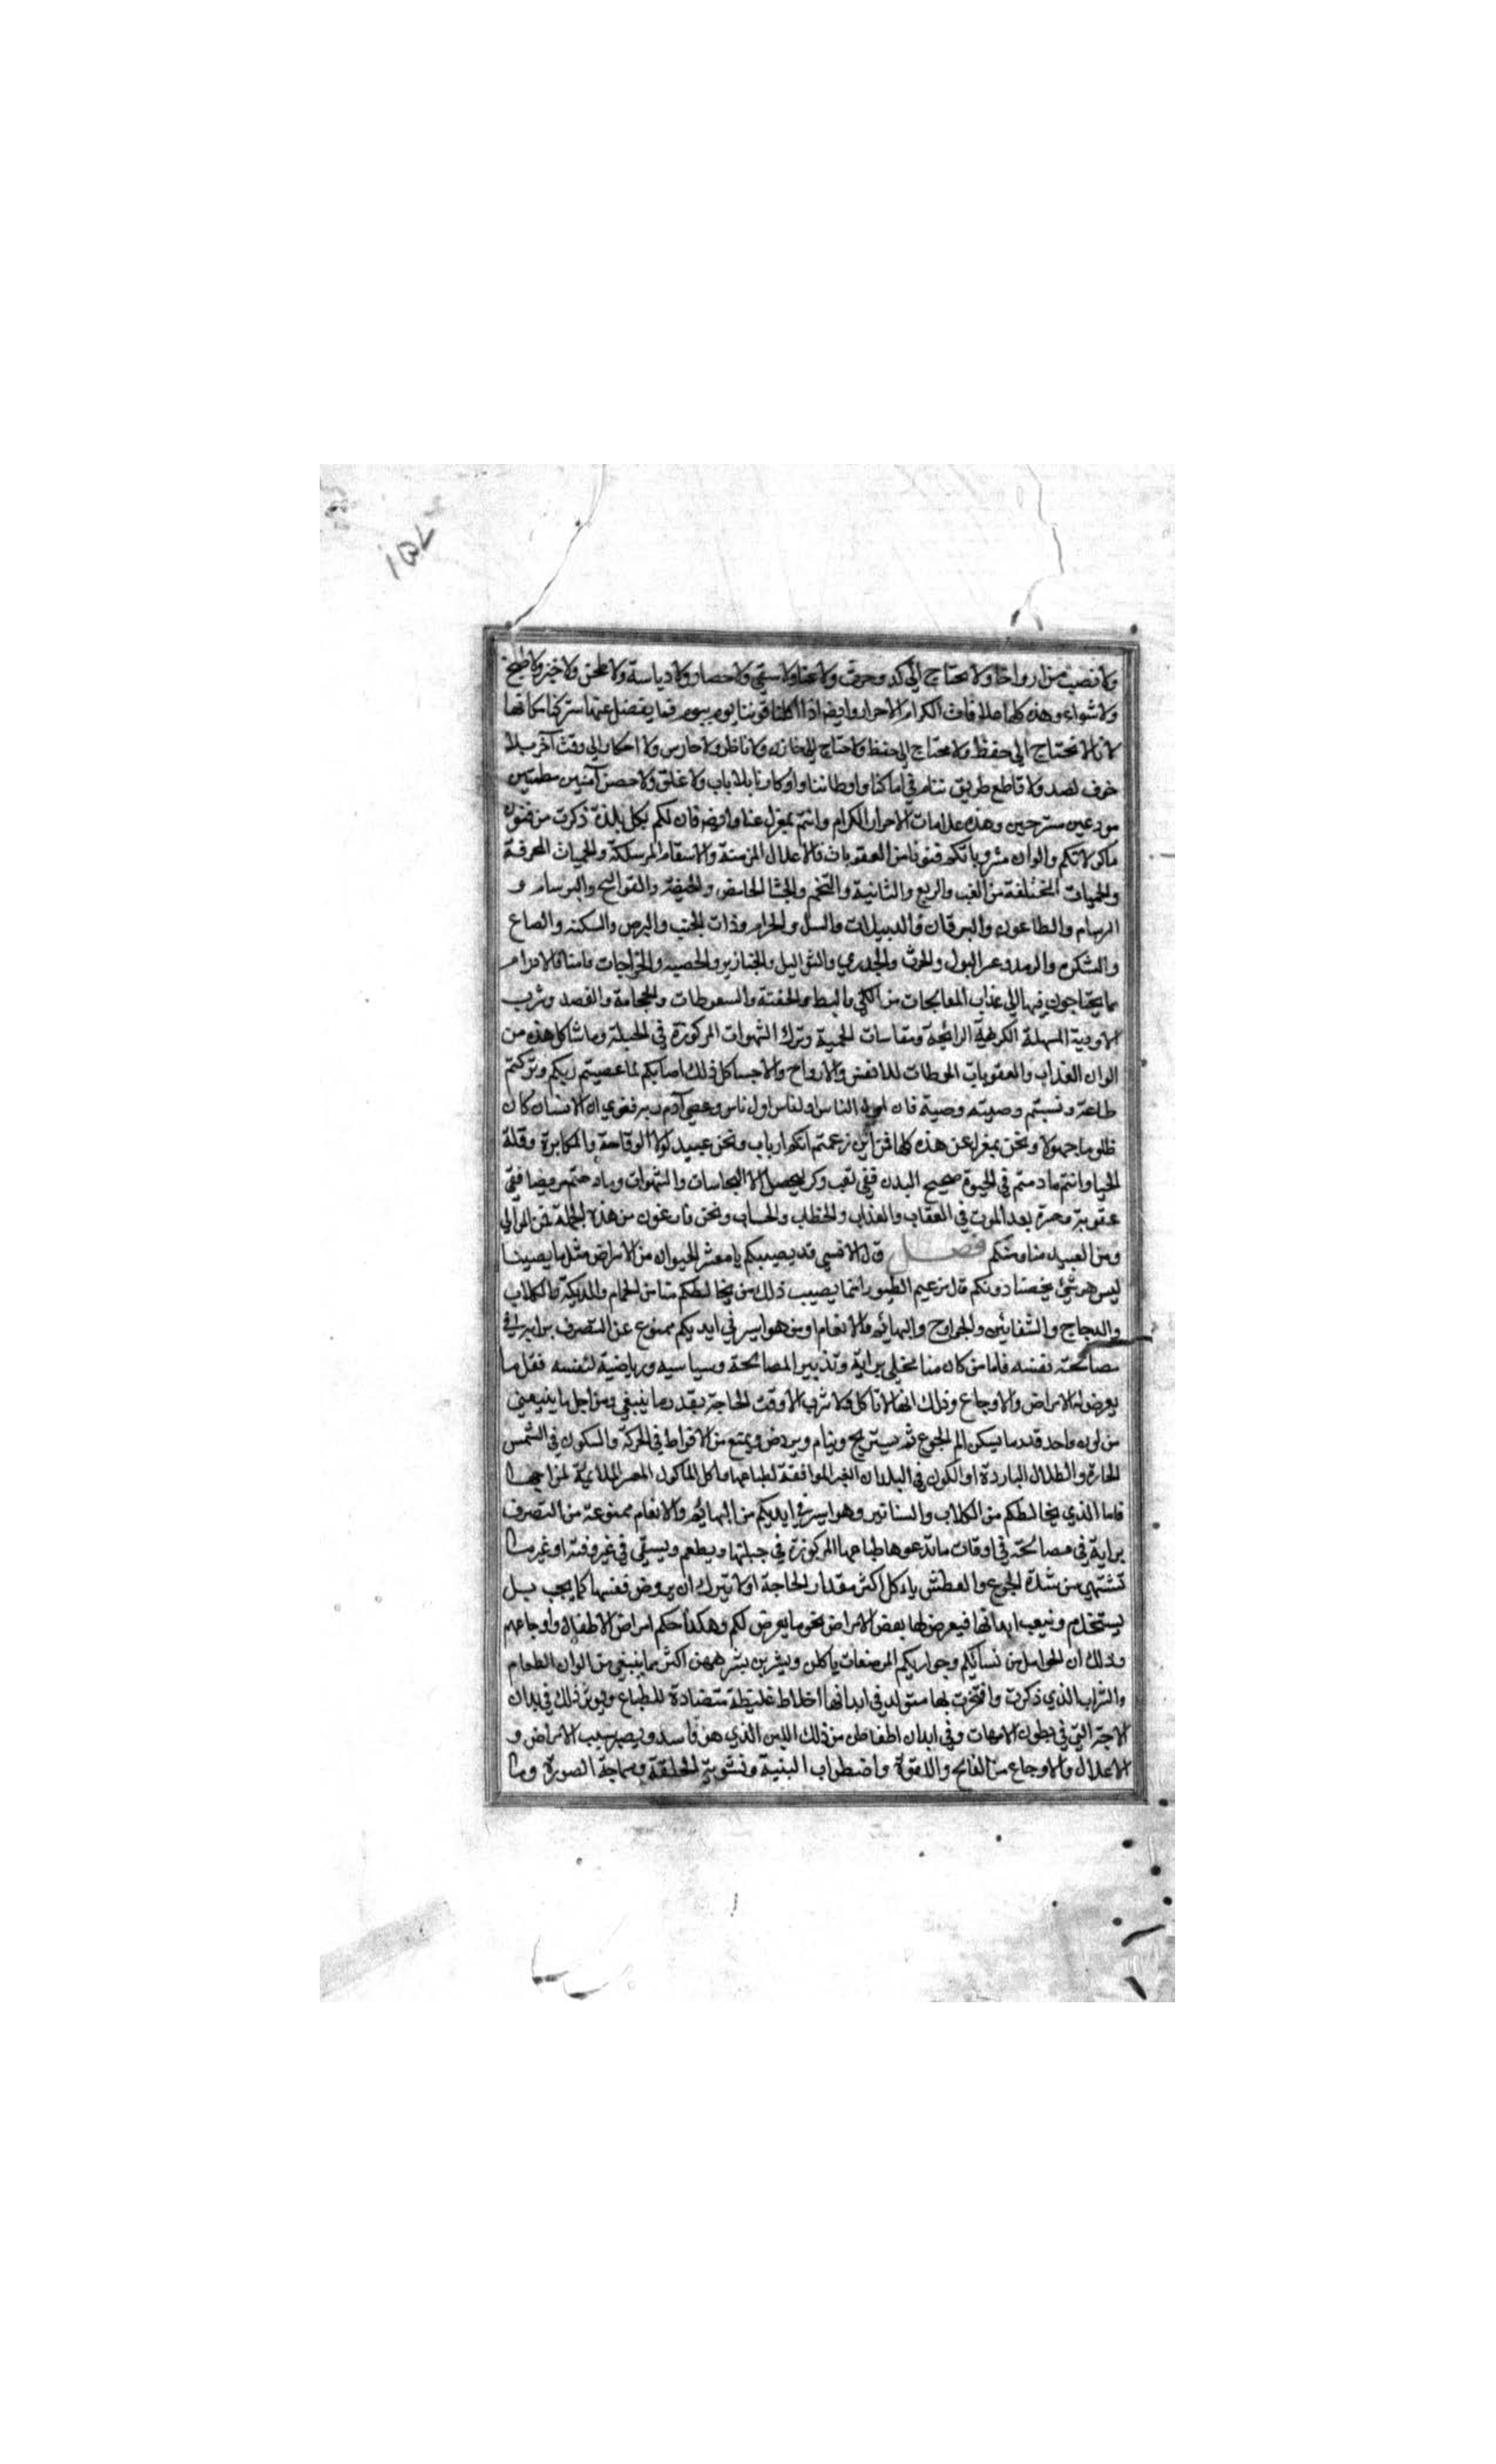 ١٥٧
ولا نصب من ارواحنا ولا نحتاج الى كد وحرث ولا عنا ولا سقي ولا حصاد ولا دياسة ولا طحن ولا خبز ولا طبخ
ولا شواء وهذه كلها علامات الكرام الاحرار وايضا اذا اكلنا قوتنا يوم بيوم فما يفضل عنها ستركنا مكانها
لانا لا نحتاج الى حفظ ولا نحتاج الى حفظ ولا نحتاج الى خازن ولا ناظر ولا حارس ولا احتكار الى وقت آخر بلا
خوف لصد ولا قاطع طريق ننام في اماكننا واوطاننا واوكارنا بلا باب ولا غلق ولا حصن آمنين مطمئنين
مودعين مستريحين وهذه علامات الاحرار الكرام وانتم بمعزل عنها وايضا فان لكم بكل لذة ذكرت من فنون
ماكولاتكم والوان مشروباتكم فنونا من العقوبات فالاعلال المزمنة والاسقام المهلكة والحميات المحرقة
والحميات المختلفة من الغب والربع والثانية والتخم والجشا الحامض والهيضة والقوالنج والبرسام و
السرسام والطاعون واليرقان والدبيلات والسل والجذام وذات الجنب والبرص والسكتة والصاع
والشكوم والرمد وعسر البول والحرث والجدري والثواليل والخنازير والحصبة والخراجات واصناف الاورام
مما يحتاجون فيها الى عذاب المعالجات من الكي والبط والحقنة والسعوطات والحجامة والفصد وشرب
الادوية المسهلة الكريهة الرائحة ومقاسات الحمية وترك الشهوات المركوزة في الجبلة وما شاكل هذه من
الوان العذاب والعقوبات المحطات للانفس والارواح والاجسا كل ذلك اصابكم لما عصيتم ربكم وتركتم
طاعته ونسيتم وصيته فان اول الناس اول ناس وعصى آدم ربه فغوى ان الانسان كان
ظلوما جهولا ونحن بمعزل عن هذه كلها فمن اين زعمتم انكم ارباب ونحن عبيد لولا الوقاحة والمكابرة وقلة
الحيا وانتم ما دمتم في الحيوة صحيح البدن ففي تعب وكد لتحصيل النجاسات والشهوات وما دمتم مريضا ففي
عقوبة وبعد الموت في العقاب والعذاب والخطاب والحساب ونحن فارغون من هذه الجملة فمن الموالي
ومن العبيد منا ومنكم فصل قال الانسي قد يصيبكم يا معشر الحيوان من الامراض مثل ما يصيبنا
ليس هو شيئ يخصنا دونكم قال زعيم الطيور انما يصيب ذلك من يخالطكم منا من الحمام والديكة والكلاب
والدجاج والشفانين والجوارح والبهائم والانعام او من هو اسير في ايديكم ممنوع عن التصرف برايه في
مصالحة نفسه فاما من كان منا مخلى برايه وتدبير المصالحة وسياسيه ورياضية لنفسه فقل ما
يعرض له الامراض والاوجاع وذلك انها لا تاكل ولا تشرب الا وقت الحاجة بقدر ما ينبغي ومن اجل ما ينبغي
من لون واحد قدر ما يسكن الم الجوع ثم يستريح وينام ويروض ويمتنع من الافراط في الحركة والسكون في الشمس
الحارة والظلال الباردة او الكون في البلدان الغير الموافقة لطباعها واكل الماكول الغير الملايمة لمزاجها
فاما الذي يخالطكم من الكلاب والسنانير وهو اسير في ايديكم من البهائم والانعام ممنوعة من التصرف
برايه في مصالحه في اوقات ما تدعوها طباعها المركوزة في جبلتها ويطعم ويسقى في غير وقته او غير ما
تشتهي من شدة الجوع والعطش ياكل اكثر مقدار الحاجة او لا تترك ان يروض نفسها كما يجب بل
يستخدم وتتعب ابدانها فيعرض لها بعض الامراض نحو ما يعرض لكم وهكذا حكم امراض الاطفال واوجاعهم
وذلك ان الحوامل من نسائكم وجواريكم المرضعات ياكلن ويشربن بشرههن اكثر مما ينبغي من الوان الطعام
والشراب الذي ذكرت وافتخرت بها ستولد في ابدانها اخلاط غليظة متضادة للطباع ويوثر ذلك في ابدان
الاجنة التي في بطون الامهات وفي ابدان اطفاطن من ذلك اللبن الذي هو فاسد ويصير سبب الامراض و
الاعلال والاوجاع من الفالج واللقوة واضطراب البنية وتشويه الخلقة وسماجة الصورة وما